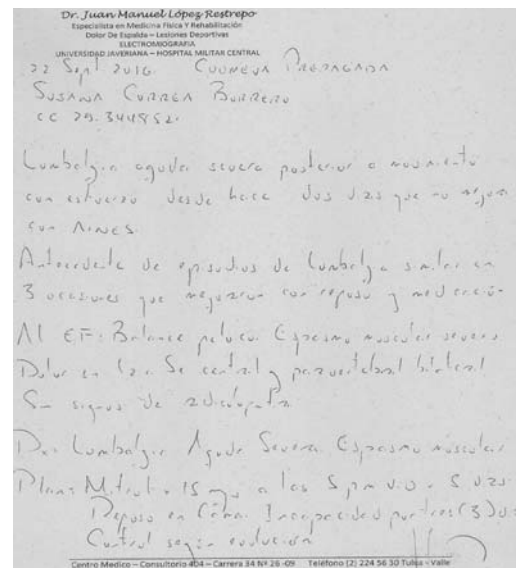 Dr. Juan Manuel López Restrepo
Especialista en Medicina Física Y Rehabilitación
Dolor De Espalda – Lesiones Deportivas
ELECTROMIOGRAFIA
UNIVERSIDAD JAVERIANA – HOSPITAL MILITAR CENTRAL
22 Sept 2016. Coomeva Prepagada
Susana Correa Borrero
cc 29.344852.
Lumbalgia aguda severa posterior a movimiento
con esfuerzo desde hace dos dias que no mejora
con AINES.
Antecedente de episodios de Lumbalgia similar en
3 ocasiones que mejoraron con reposo y medicación
Al EF: Balance pelvico Espasmo muscular severo
Dolor en central y paravertebral bilateral
Sin signos de radiculopatia
Dx: Lumbalgia Aguda Severa. Espasmo muscular
Plan: 15 mg a las 5 pm v.o. 5 dias
Reposo en Cama. Incapacidad por tres (3) dias
Control según evolución
Centro Medico – Consultorio 404 – Carrera 34 Nº 26 -09 Teléfono (2) 224 56 30 Tuluá - Valle